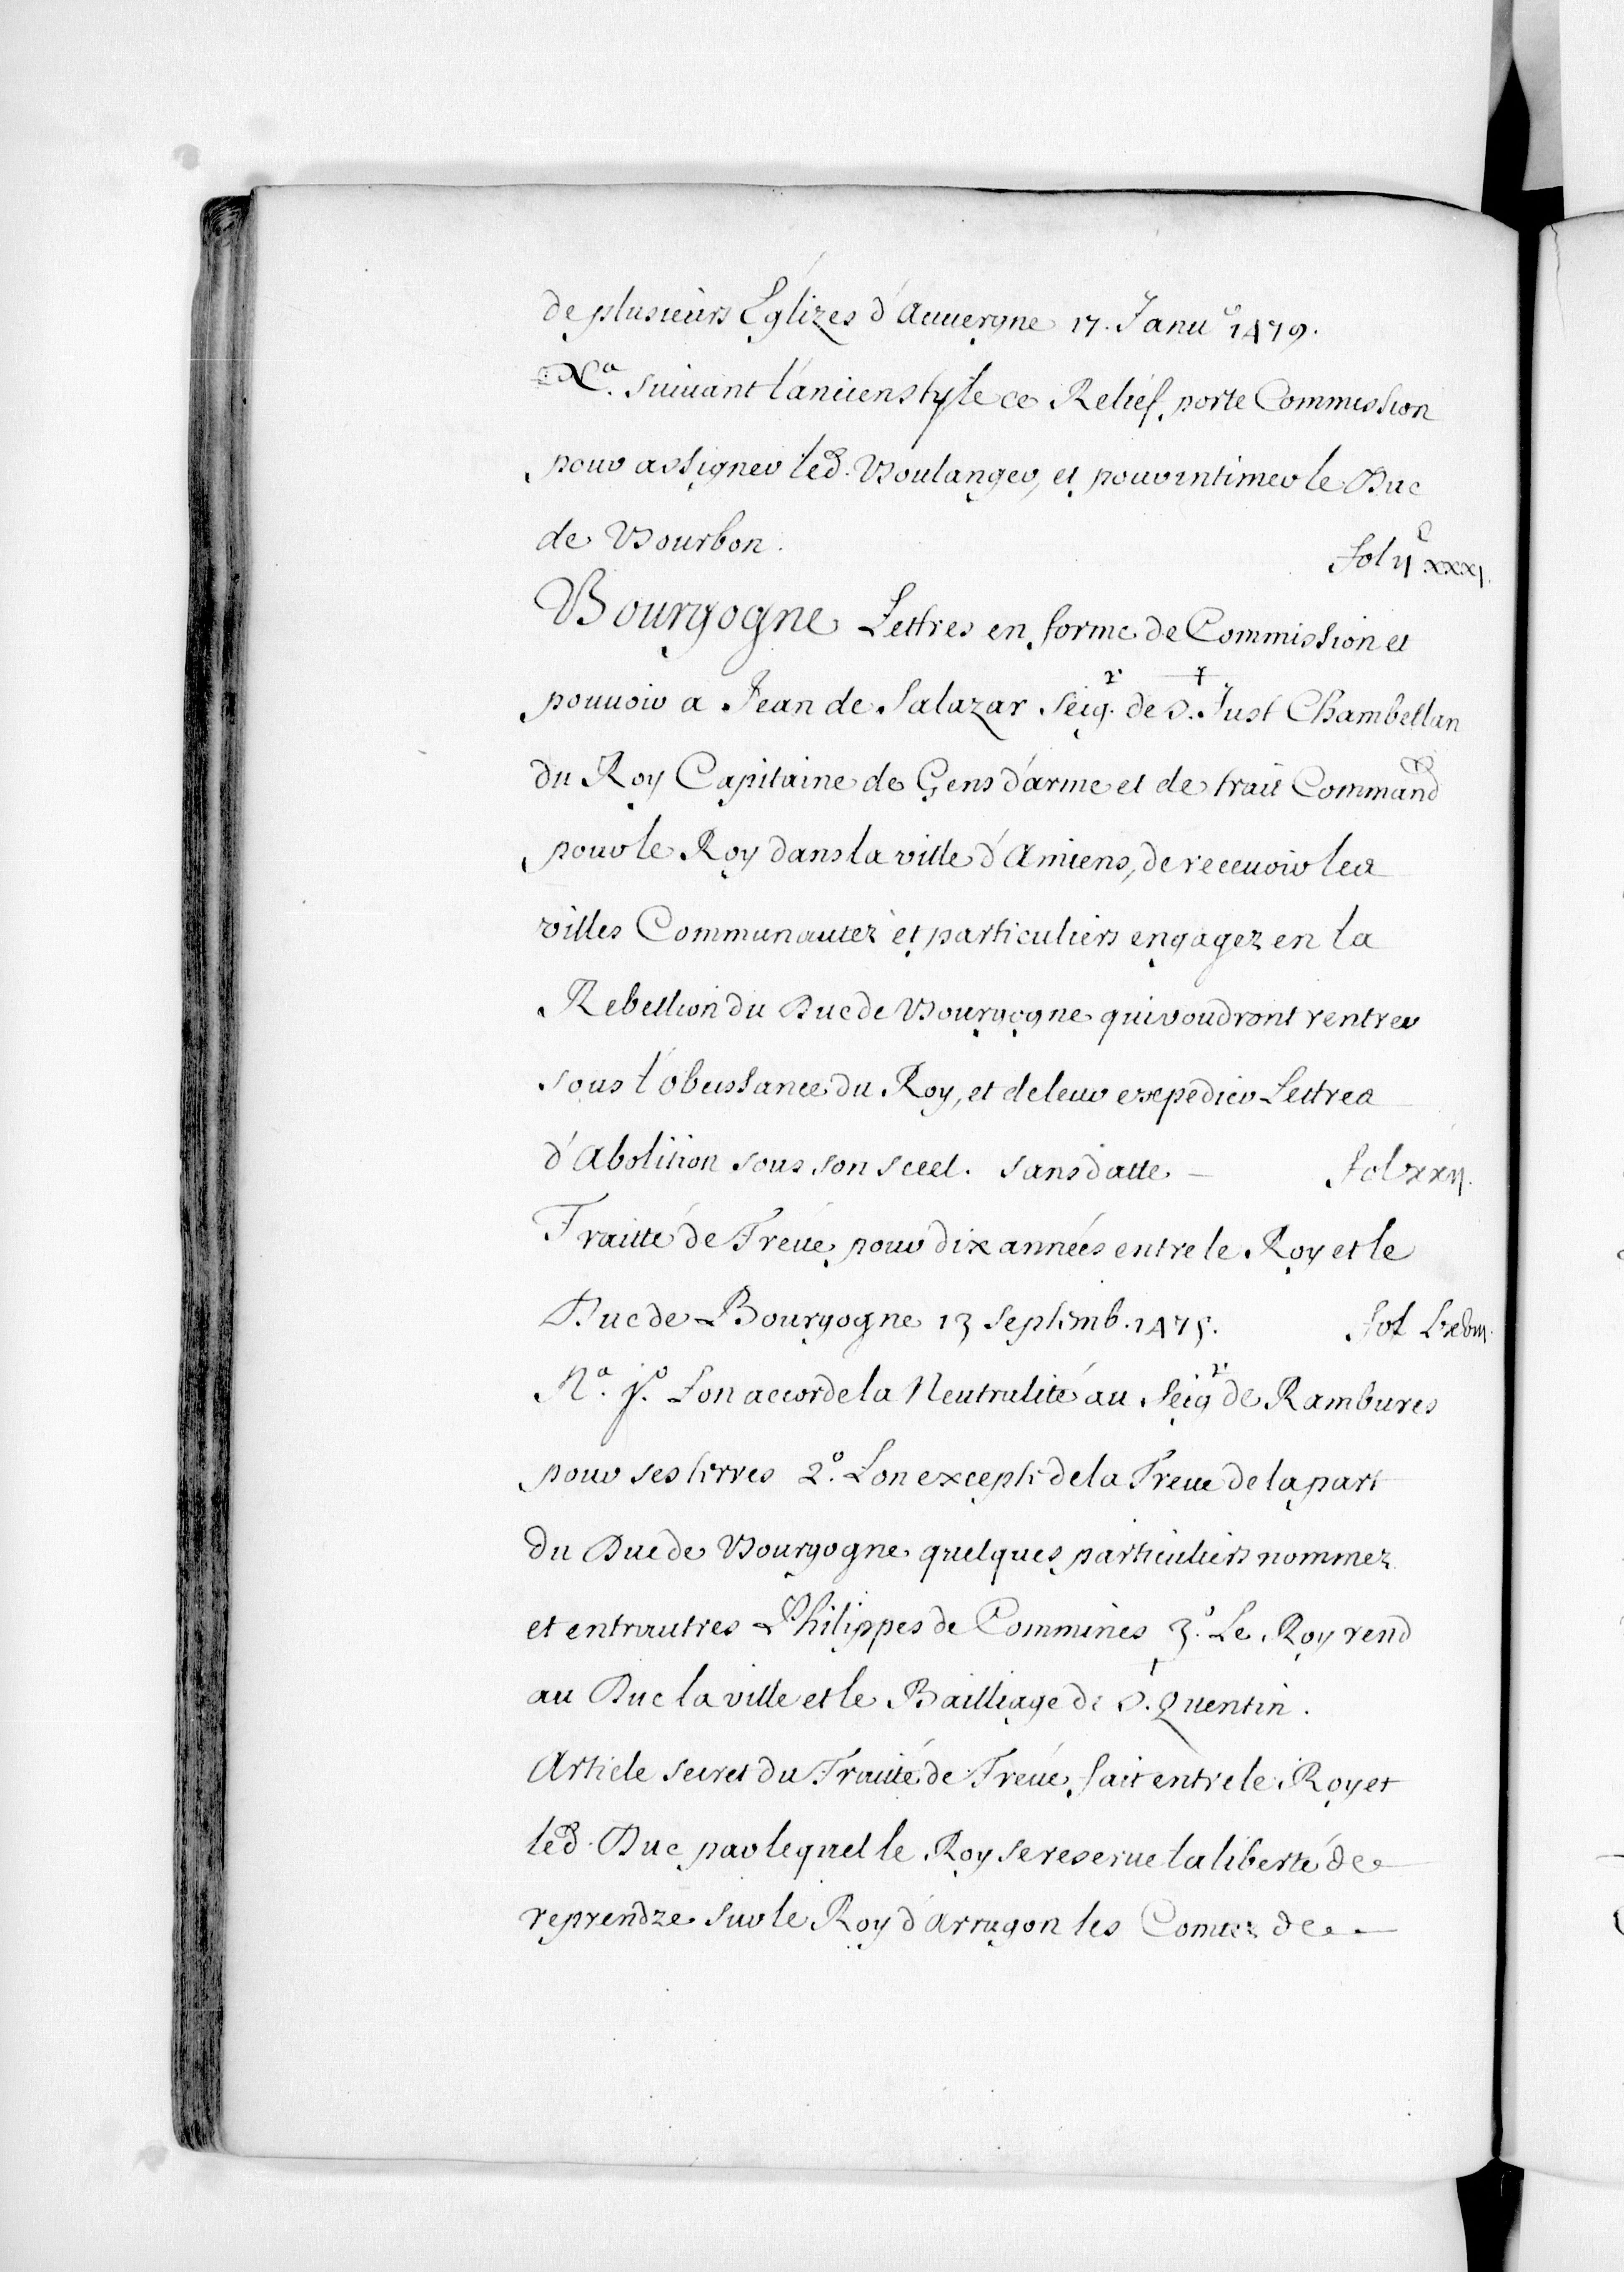 de plusieurs Églizes d'Auuergne 17. Janu.e 1479.
Na. suiuant l'ancien style ce Relief porte Commission
pour assigner led. Boulanger, et pour intimer le Duc
de Bourbon. fol ijc xxxj.
Bourgogne Lettres en forme de Commission et
pouuoir a Jean de Salazar Seigr. de St. Just Chambellan
du Roy Capitaine de Gens d'arme et de trait Command
pour le Roy dans la ville d'Amiens, de receuoir les
villes Communautez et particuliers engagez en la
Rebellion du Duc de Bourgogne qui voudront rentrer
sous l'obeissance du Roy, et de leur expedier Lettres
d'Abolition sous son sceel. sans datte - fol xxij.
Traitté de Tréue pour dix années entre le Roy et le
Duc de Bourgogne 13 Septemb. 1475. fol
Na. jo. Lon accorde la Neutralité au Seigr de Rambures
pour ses terres 2o. Lon excepte de la Treue de la part
du Duc de Bourgogne quelques particuliers nommez
et entrautres Philippes de Commines 3o. Le Roy rend
au Duc la ville et le Bailliage de St. Quentin.
Article secret du Traitté de Tréue fait entre le Roy et
led. Duc par lequel le Roy se reserue la liberté de
reprendre sur le Roy d'Arragon les Comtez de